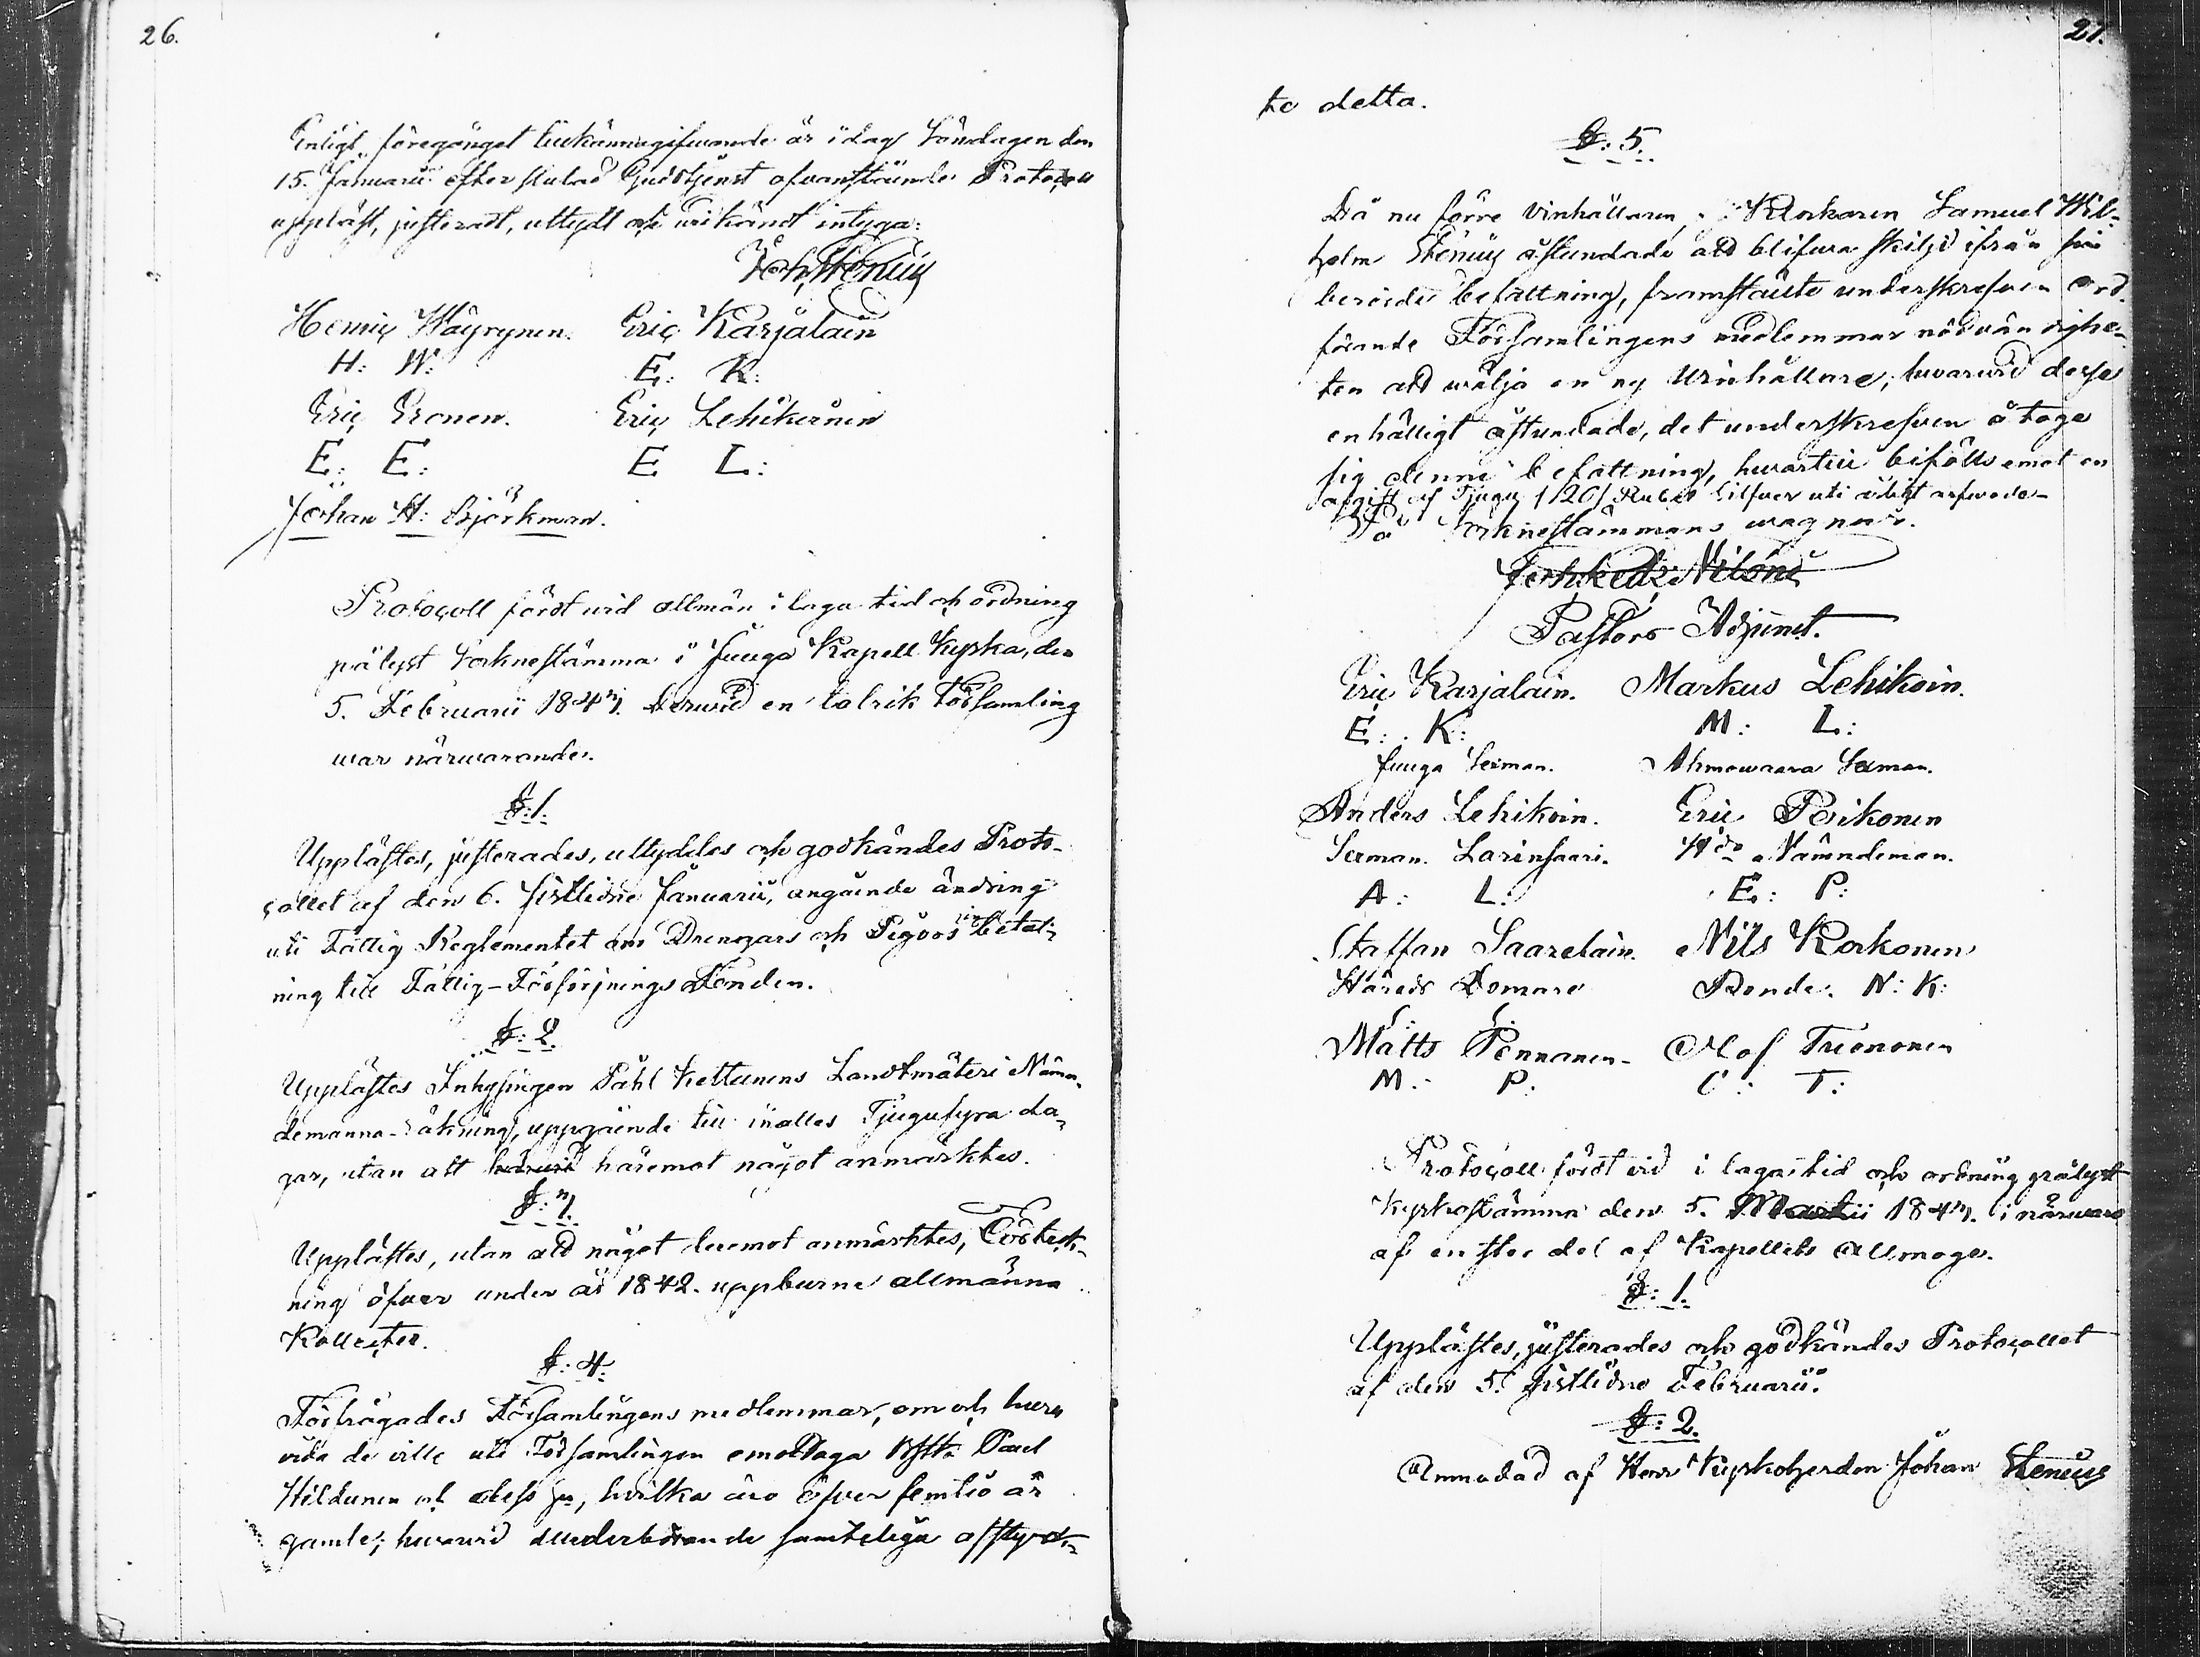 26.
Enligt föregånget tillkännagifwande är i dag Söndagen den
15. Januarii efter slutad Gudstjenst ofvanstående Protocoll
uppläst, justeradt, uttydt och erkändt intyga:
Joh. Stenius
Henric Wäyrynen. Eric Karjalain
H: W: E: K:
Eric Eronen. Eric Lehikoinen
E: E: E L:
Johan H: Björkman.
Protocoll fördt wid allmän i laga tid och ordning
pålyst Socknestämma i Juuga Kapell Kyrka, den
5. Februarii 1843. herwid en talrik Församling
war närwarande.
§. 1.
Upplästes, justerades, uttyddes och godkändes Proto-
collet af den 6. sistlidne Januarii, angående ändring
uti Fattig Reglementet om Drengars och Pigors betal-
ning till Fattig-Försörjnings Fonden.
§: 2.
Upplästes Inhysingen Påhl Kettunens Landtmäteri Nämn-
demanna-räkning, uppgående till inalles Tjugufyra da-
gar, utan att häremot något anmärktes.
§: 3.
Upplästes, utan att något deremot anmärktes, Förteck-
ning öfver under år 1842. uppburne allmänna
Kollecter.
§: 4.
Förfrågades Församlingens medlemmar, om och huru
vida de ville uti Församlingen emottaga Paul
Hildunen och dess, hvilka äro öfver femtio år
gamle; hwarwid wederbörande samteliga afstyrck-
27.
te detta.
§: 5.
Då nu förre Vinhållaren, Klockaren Samuel Wil-
helm Stenius åstundade att blifva skiljd ifrån sin
berörde befattning, framstälte underskrefven ord-
förande Församlingens medlemmar nödvändighe-
ten att wälja en ny Winhållare; hwarwid desse
enhälligt åstundade, det underskrefven åtoge
sig denne befattning, hwartill bifölls emot en
afgift af Tjugu /20/ Rubel Silfver uti årligt arfwode-
På Socknestämmans wägnar.
Nilsone
Pastors Adjunct.
Eric Karjalain. Markus Lehikoin.
E: K: M: L:
Juuga Sexman. Ahmowaara Sexman.
Anders Lehikoin. Eric Peikonen
Sexman. Larinsaari. Nämndeman.
A: L: E: P:
Staffan Saarelain. Nils Korkonen
Härads Domare Bonde. N: K:
S: S:
Matts Pennanen- Olof Trönonen
M: P: O: T:
Protocoll fördt vid i laga tid och ordning pålyst
Kyrkostämma den 5. Martii 1843. i närvaro
af en stor del af Kapellets Allmoge.
§: 1.
Upplästes, justerades och godkändes Protocollet
af den 5. sistlidne Februarii.
§: 2.
Anmodad af Herr Kyrkoherden Johan Stenius